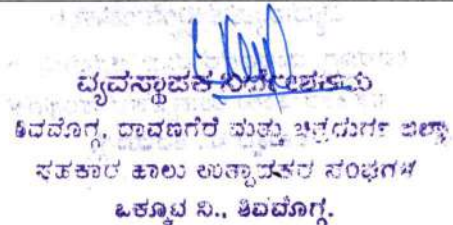 ವ್ಯವಸ್ಥಾಪಕ ನಿರ್ದೇಶಕರು
ಶಿವಮೊಗ್ಗ, ದಾವಣಗೆರೆ ಮತ್ತು ಚಿತ್ರದುರ್ಗ ಜಿಲ್ಲಾ
ಸಹಕಾರ ಹಾಲು ಉತ್ಪಾದಕರ ಸಂಘಗಳ
ಒಕ್ಕೂಟ ನಿ., ಶಿವಮೊಗ್ಗ.